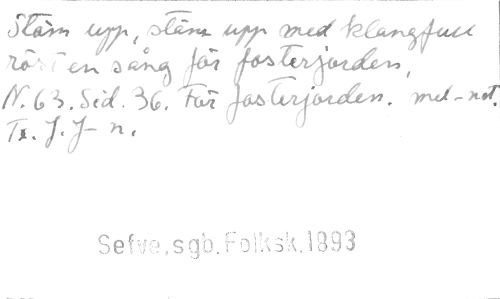 Stäm upp, stäm upp med klangfull
röst en sång för fosterjorden,
N. 63. Sid. 36. För fosterjorden. mel-not.
Tx. J. J-n.
Sefve, sgb. Folksk. 1893